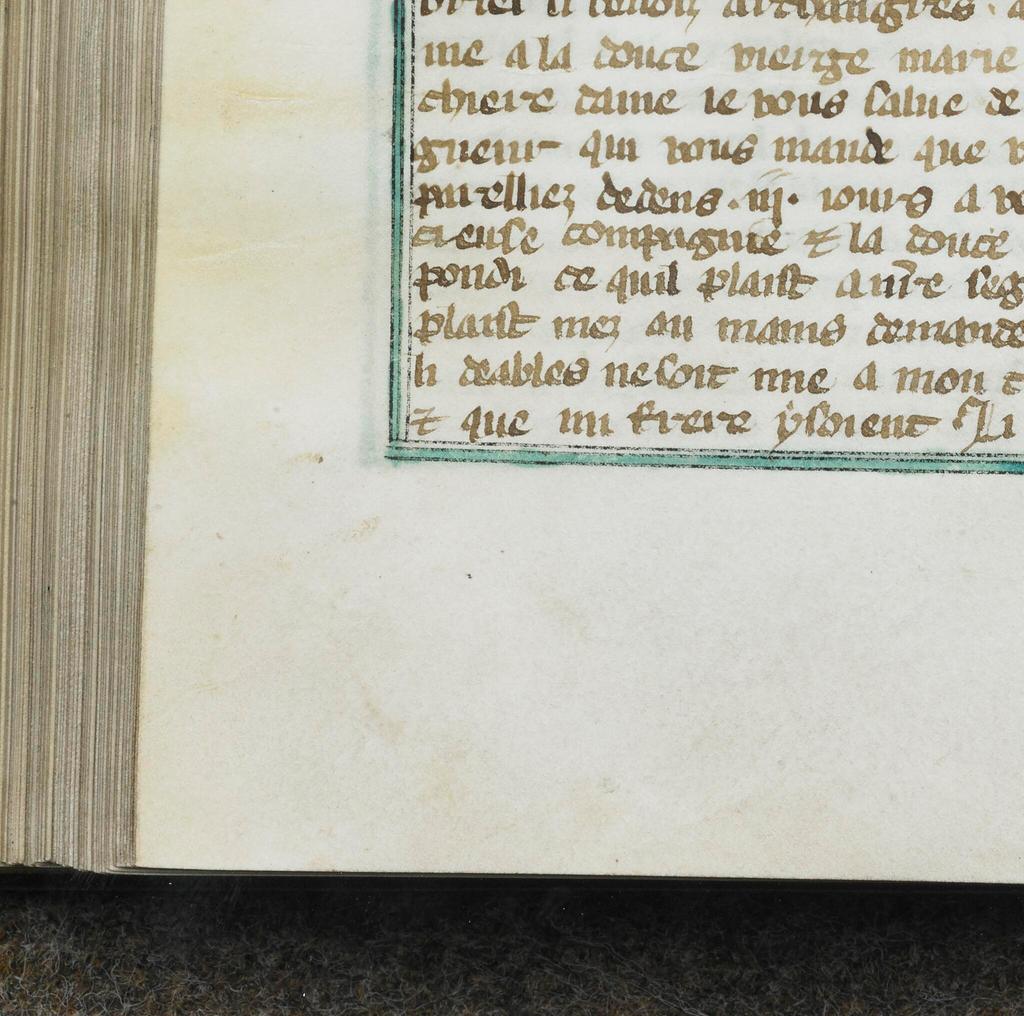 briel li benois archangres · a
me a la douce vierge marie
chiere dame ie vous salue de
gneur qui vous mande que v
parelliez dedens · iij · iours a ve
cieuse compagnie ⁊ la douce
pondi ce quil plaist a nr̄e seg
plaist mez au mains demande
li deables ne soit mie a mon t
⁊ que mi frere ẏ soient Li